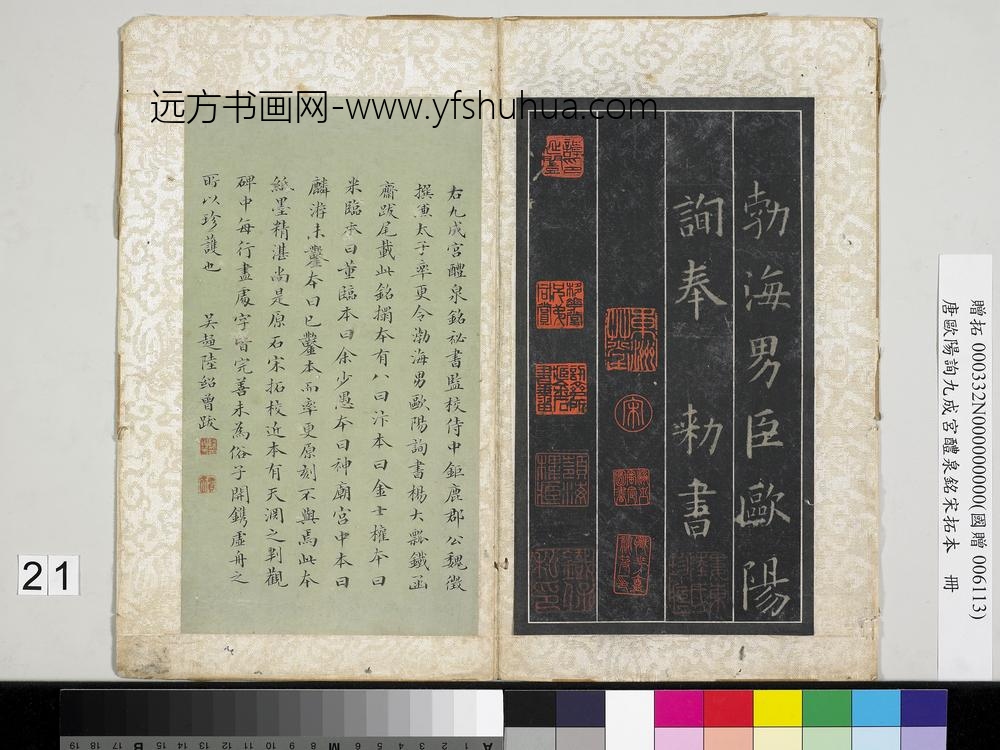 远方书画网-www.yfshuhua.com
贈拓 000332N000000000(國贈 006113)
唐歐陽詢九成宮醴泉銘宋拓本 冊
勃海男臣歐陽
詢奉 勑書
右九成宮醴泉銘祕書監校侍中鉅鹿郡公魏徵
撰兼太子率更令渤海男歐陽詢書楊大瓢鐵函
齋跋尾載此銘搨本有八曰汴本曰金士權本曰
米臨本曰董臨本曰余少愚本曰神廟宮中本曰
麟游未鑿本曰已鑿本而率更原刻不與焉此本
紙墨精湛尚是原石宋拓校近本有天淵之判觀
碑中每行盡處字皆完善未為俗子開鐫虛舟之
所以珍護也 吳趨陸紹曾跋
宋
21